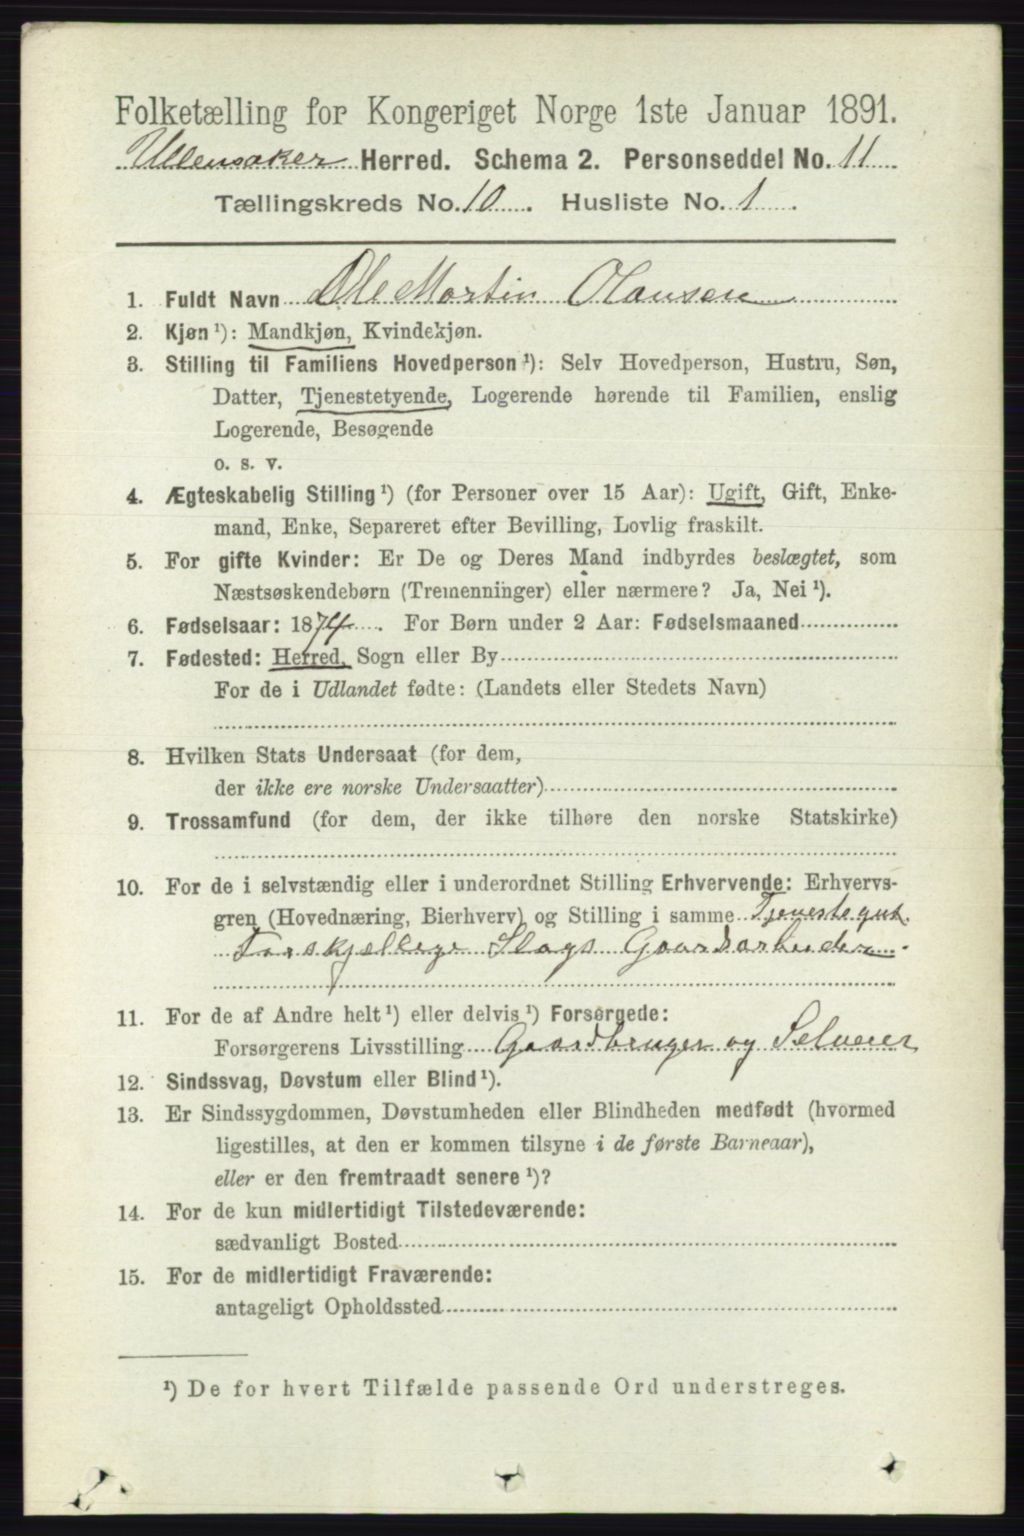 Folketælling for Kongeriget Norge 1ste Januar 1891.
Ullensaker Herred. Schema 2. Personseddel No. 11
Tællingskreds No. 10. Husliste No. 1.
1. Fuldt Navn Ole Martin Hansen
2. Kjøn¹): Mandkjøn, Kvindekjøn.
3. Stilling til Familiens Hovedperson¹): Selv Hovedperson, Hustru, Søn,
Datter, Tjenestetyende, Logerende hørende til Familien, enslig
Logerende, Besøgende
o. s. v.
4. Ægteskabelig Stilling¹) (for Personer over 15 Aar): Ugift, Gift, Enke-
mand, Enke, Separeret efter Bevilling, Lovlig fraskilt.
5. For gifte Kvinder: Er De og Deres Mand indbyrdes beslægtet, som
Næstsøskendebørn (Tremenninger) eller nærmere? Ja, Nei¹).
6. Fødselsaar: 1874. For Børn under 2 Aar: Fødselsmaaned
7. Fødested: Herred, Sogn eller By
For de i Udlandet fødte: (Landets eller Stedets Navn)
8. Hvilken Stats Undersaat (for dem,
der ikke ere norske Undersaatter)
9. Trossamfund (for dem, der ikke tilhøre den norske Statskirke)
10. For de i selvstændig eller i underordnet Stilling Erhvervende: Erhvervs-
gren (Hovednæring, Bierhverv) og Stilling i samme Tjenestegut.
Forskjellige Slags Gaardsarbeider.
11. For de af Andre helt¹) eller delvis¹) Forsørgede:
Forsørgerens Livsstilling Gaardbruger og Selveier
12. Sindssvag, Døvstum eller Blind¹).
13. Er Sindssygdommen, Døvstumheden eller Blindheden medfødt (hvormed
ligestilles, at den er kommen tilsyne i de første Barneaar),
eller er den fremtraadt senere¹)?
14. For de kun midlertidigt Tilstedeværende:
sædvanligt Bosted
15. For de midlertidigt Fraværende:
antageligt Opholdssted
¹) De for hvert Tilfælde passende Ord understreges.